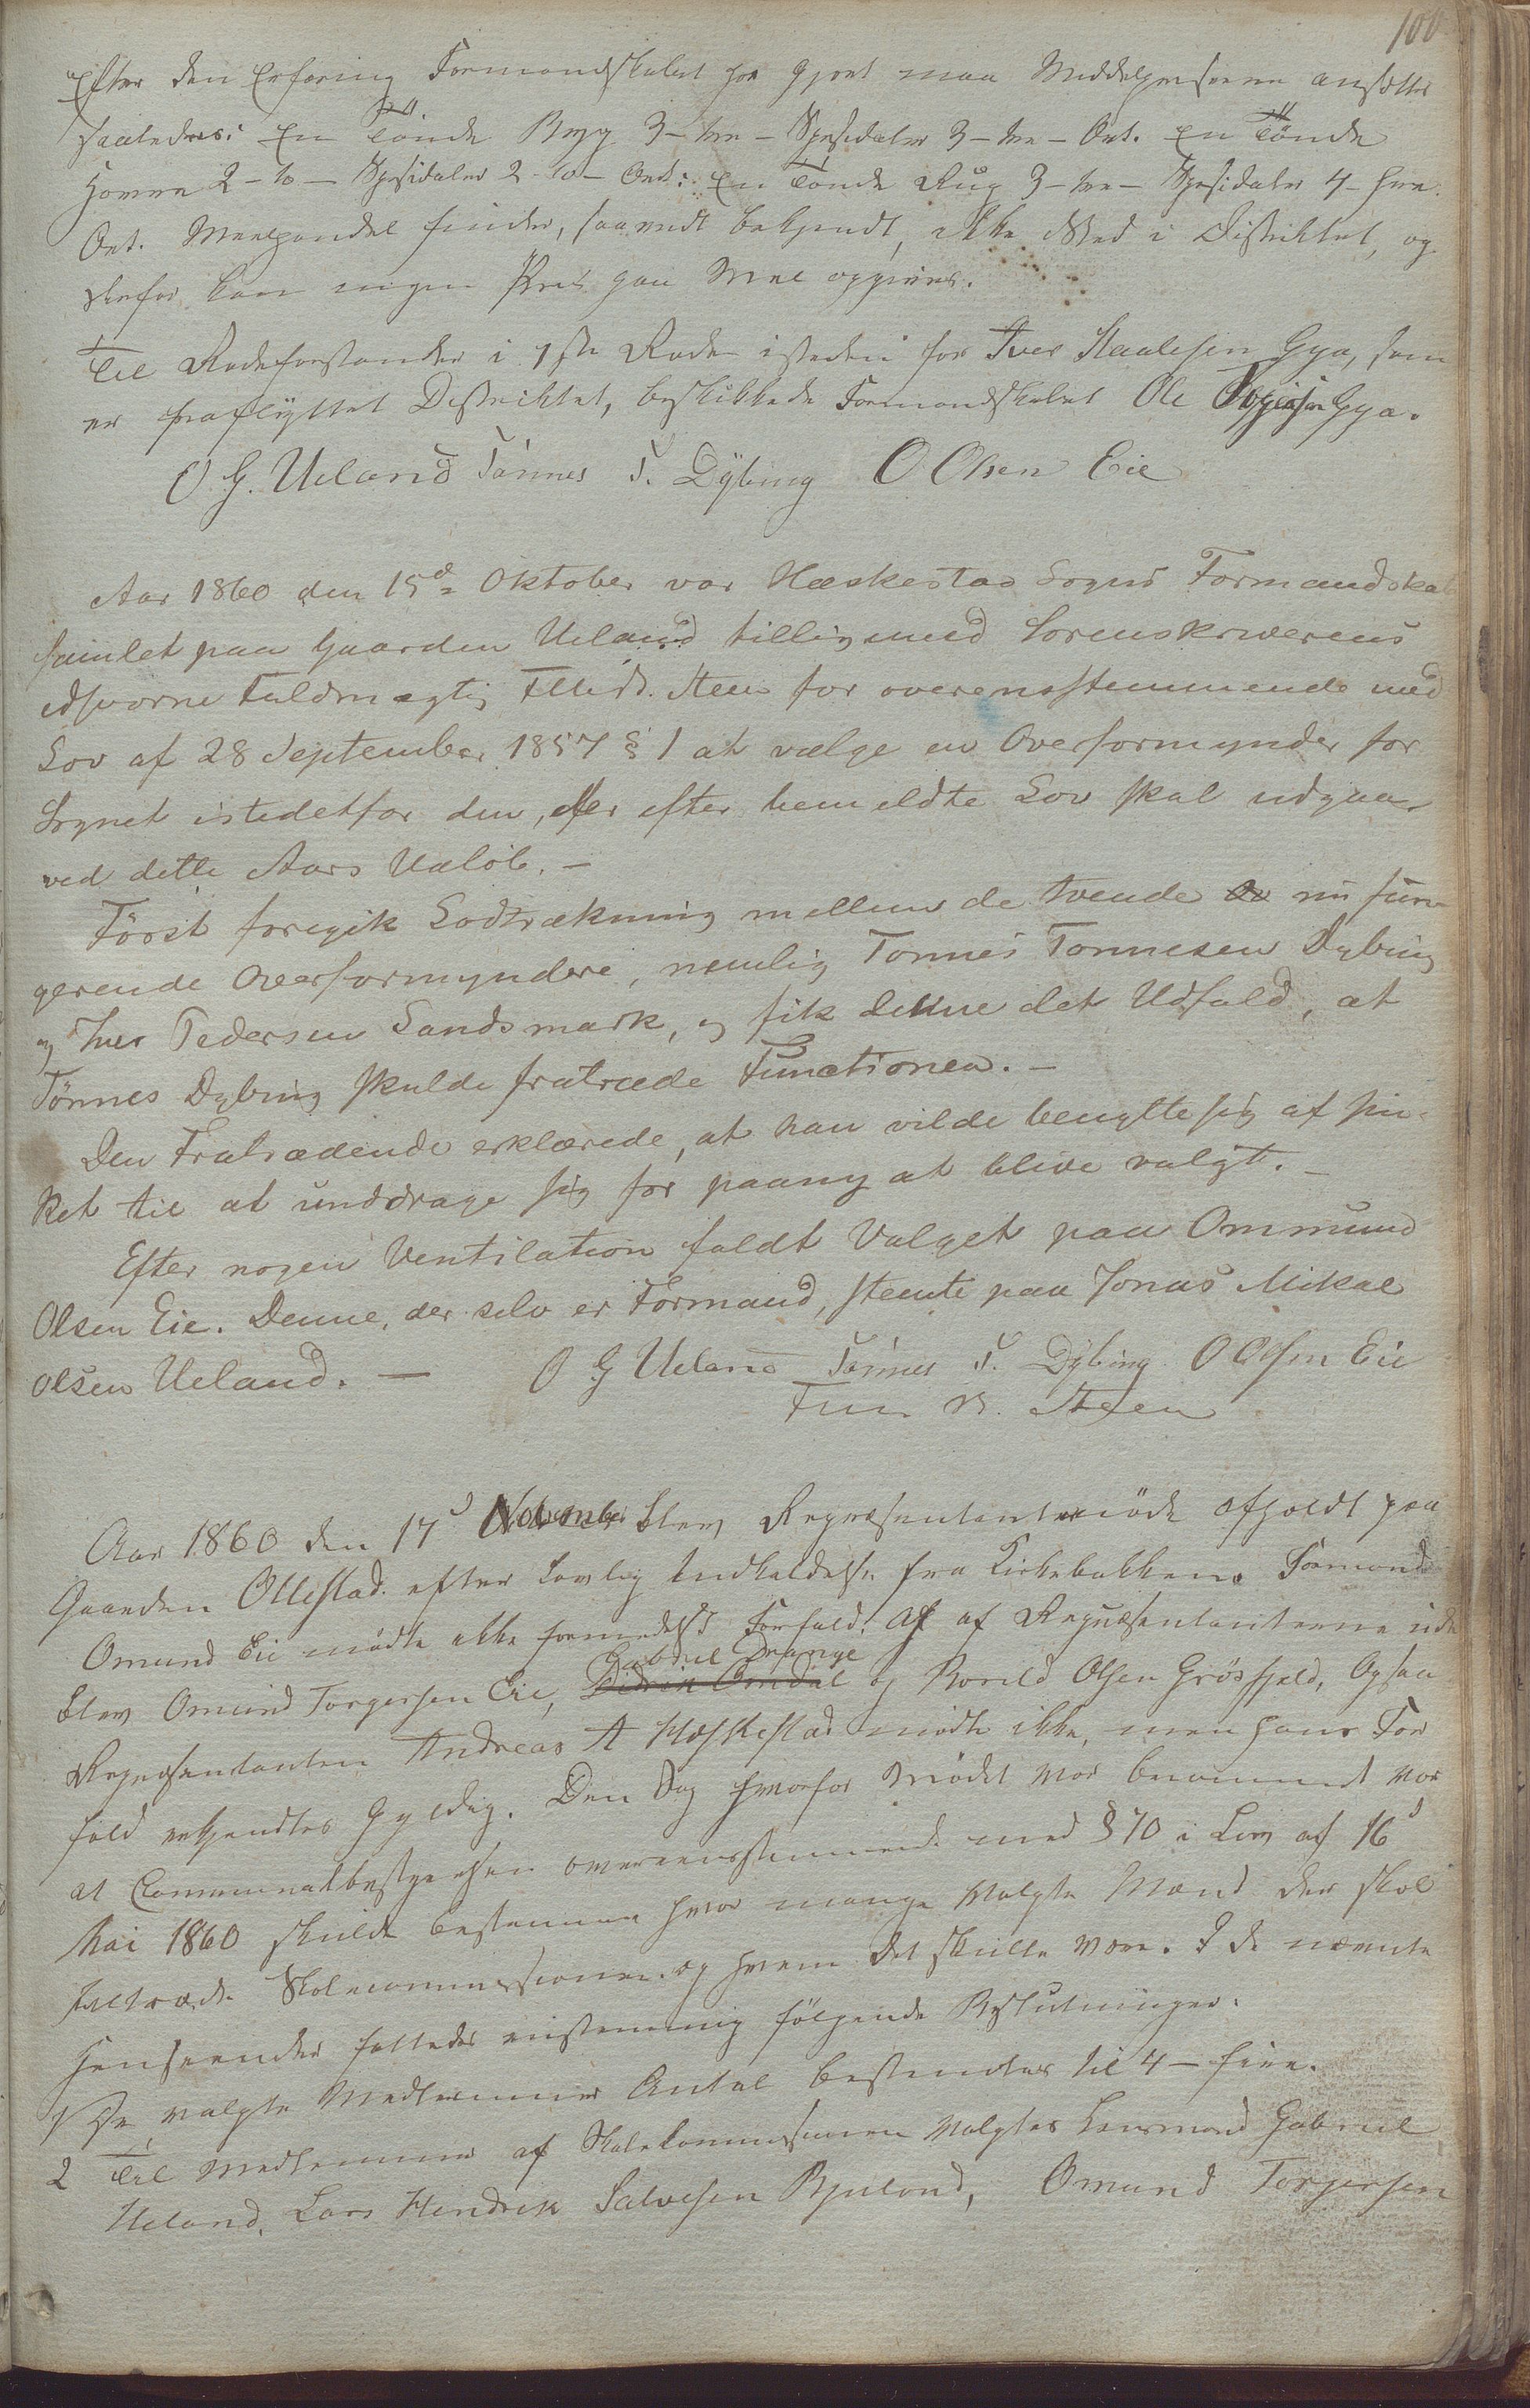 100
Efter den Erfaring Formandskabet har gjort maa Middelpriserne ansættes
saaledes: En Tønde Byg 3-tre- Spesidaler 3-tre- Ort. En Tønde
Havre 2-to- Spesidaler 2-to- Ort: En Tønde Rug 3-tre- Spesidaler 4-fire
Ort. Meelhandel finder, saavidt bekjendt, ikke Sted i Distriktet, og
derfor kan ingen Pris paa Mel opgives.
Til Rodeforstander i 1ste Rode isteden for Iver Staalesen Gya, som
er fraflyttet Distriktet, beskikkede Formandskabet Ole Gya.
O. G. Ueland Tønnes T. Dÿbing O Olsen Eie
Aar 1860 den 15de Oktober var Hæskestad Sogns Formandskab
samlet paa Gaarden Ueland tilligemed Sorenskriverens
edsvorne Fuldmægtig Steen for overensstemmende med
Lov af 28 September 1857 § 1 at vælge en Overformynder for
Sognet istedetfor den, der efter bemeldte Lov skal udgaa
ved dette Aars Udløb. -
Først foregik Lodtrækning mellem de tvende nu fun-
gerende Overformyndere, nemlig Tønnes Tønnesen Dybing
og Iver Pedersen Sandsmark, og fik denne det Udfald, at
Tønnes Dybing skulde fratræde Functionen. -
Den Fratrædende erklærede, at han vilde benytte sig af sin
Ret til at unddrage sig for paany at blive valgt. -
Efter nogen Ventilation faldt Valget paa Ommund
Olsen Eie. Denne, der selv er Formand, stemte paa Jonas Mikal
Olsen Ueland. - O G Ueland Tønnes T. Dÿbing O Olsen Eie
Steen
Aar 1860 den 17d November blev Repræsentantmøde afholdt paa
Gaarden Ollestad efter lovlig Indkaldelse fra Kirkebakken. Formand
Omund Eie mødte ikke formedelst Forfald. Af af Repræsentanterne ude
blev Omund Torgersen Eie, Gabriel Drange Didrik Omdal og Borild Olsen Grøsfjeld, Ogsaa
Repræsentanten Andreas A Hæskestad mødte ikke, men hans For
fald erkjendtes Gyldig. Den Sag hvorfor Mødet var berammet var
at Communalbestyrelsen overensstemmende med § 70 i Lov af 16d
Mai 1860 skulde bestemme hvor mange valgte Mænd der skal
tiltræde Skolecommissionen og hvem det skulle være. I de nævnte
Henseender fattedes enstemmig følgende Beslutninger.
1 De valgte Medlemmers Antal bestemtes til 4 - fire.
2 Til Medlemmer af Skolekommissionen valgtes Lensmand Gabriel
Ueland, Lars Hendrik Salvesen Bjuland, Omund Torgersen